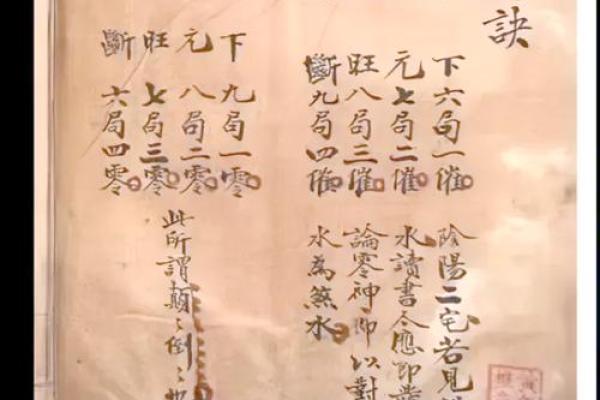 訣
下六局一催
元七局二催
旺八局三催
斷九局四催
陰陽二宅若見
水讀書令應即
論零神即以對
水為煞水
下九局一零
元八局二零
旺七局三零
斷六局四零
此所謂顛々倒々